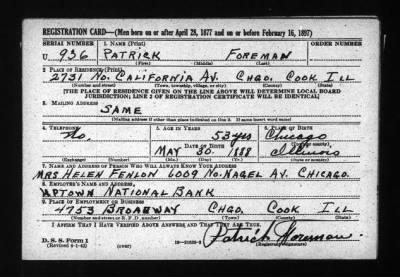 REGISTRATION CARD—(Men born on or after April 28, 1877 and on or before February 16, 1897)
SERIAL NUMBER 1. NAME (Print) ORDER NUMBER
U 936 PATRICK FOREMAN
(First) (Middle) (Last)
2. PLACE OF RESIDENCE (Print)
2731 No. CALIFORNIA AV. CHGO. COOK ILL
(Number and street) (Town, township, village, or city) (County) (State)
[THE PLACE OF RESIDENCE GIVEN ON THE LINE ABOVE WILL DETERMINE LOCAL BOARD
JURISDICTION; LINE 2 OF REGISTRATION CERTIFICATE WILL BE IDENTICAL]
3. MAILING ADDRESS
SAME
[Mailing address if other than place indicated on line 2. If same insert word same]
4. TELEPHONE 5. AGE IN YEARS 6. PLACE OF BIRTH
No. 53 yrs Chicago
DATE OF BIRTH (Town or county)
MAY 30. 1888 Illinois
(Exchange) (Number) (Mo.) (Day) (Yr.) (State or country)
7. NAME AND ADDRESS OF PERSON WHO WILL ALWAYS KNOW YOUR ADDRESS
MRS HELEN FENLON 6009 No. NAGEL AV. CHICAGO.
8. EMPLOYER'S NAME AND ADDRESS
UPTOWN NATIONAL BANK
9. PLACE OF EMPLOYMENT OR BUSINESS
4753 BROADWAY CHGO. COOK ILL
(Number and street or R. F. D. number) (Town) (County) (State)
I AFFIRM THAT I HAVE VERIFIED ABOVE ANSWERS AND THAT THEY ARE TRUE.
D. S. S. Form 1
(Revised 4-1-42) (over) Patrick Foreman
(Registrant's signature)